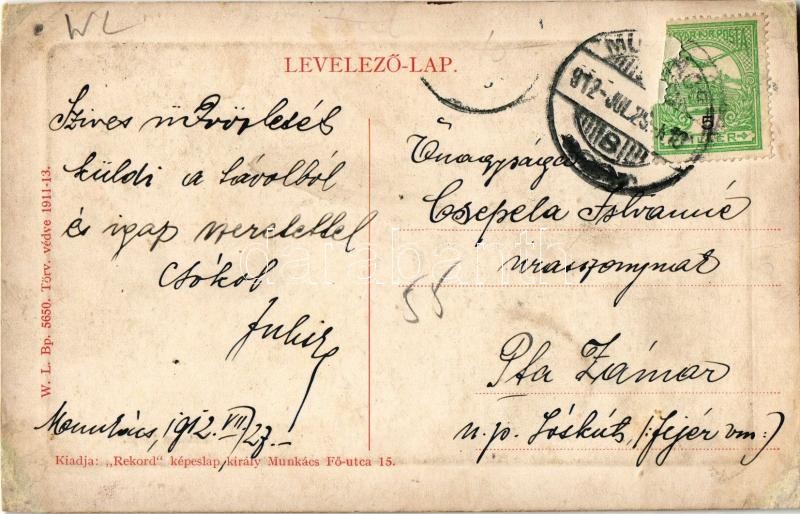 WL
LEVELEZŐ-LAP.
Szives üdvözletét
küldi a távolból
és igaz szeretettel
csókol
Juliska
Munkács, 1912. VII/27.
Kiadja: „Rekord" képeslap király Munkács Fő-utca 15.
W. L. Bp. 5650. Törv. védve 1911-13.
912 JUL. 2
5
Őnagysága
Csepela Istvánné
uraszonynak
55
Pta Zámor
u. p. Sóskút, (: fejér vm :)
darabanth